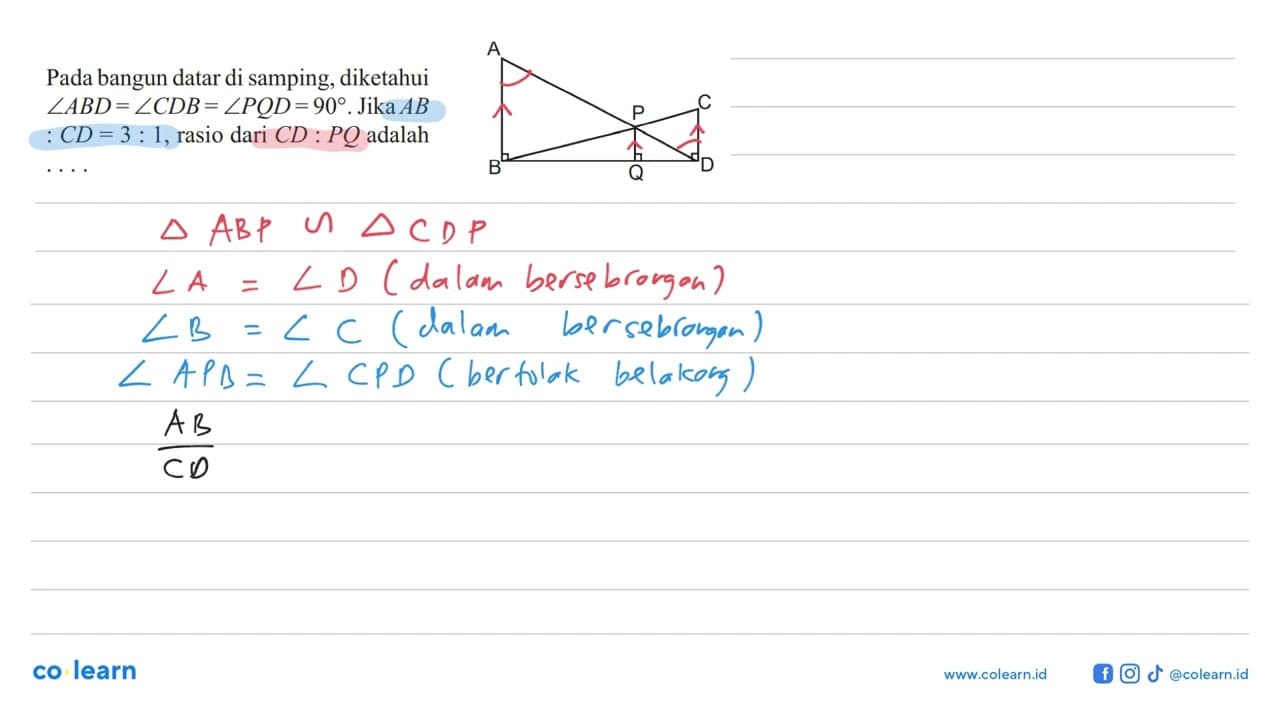 Pada bangun datar di samping, diketahui
∠ABD = ∠CDB = ∠PQD = 90°. Jika AB
: CD = 3 : 1, rasio dari CD : PQ adalah
. . . .
A
P
C
B
Q
D
△ ABP ∽ △ CDP
∠A = ∠D (dalam bersebrangan)
∠B = ∠C (dalam bersebrangan)
∠APB = ∠CPD (bertolak belakang)
AB
CD
co learn
www.colearn.id
@colearn.id